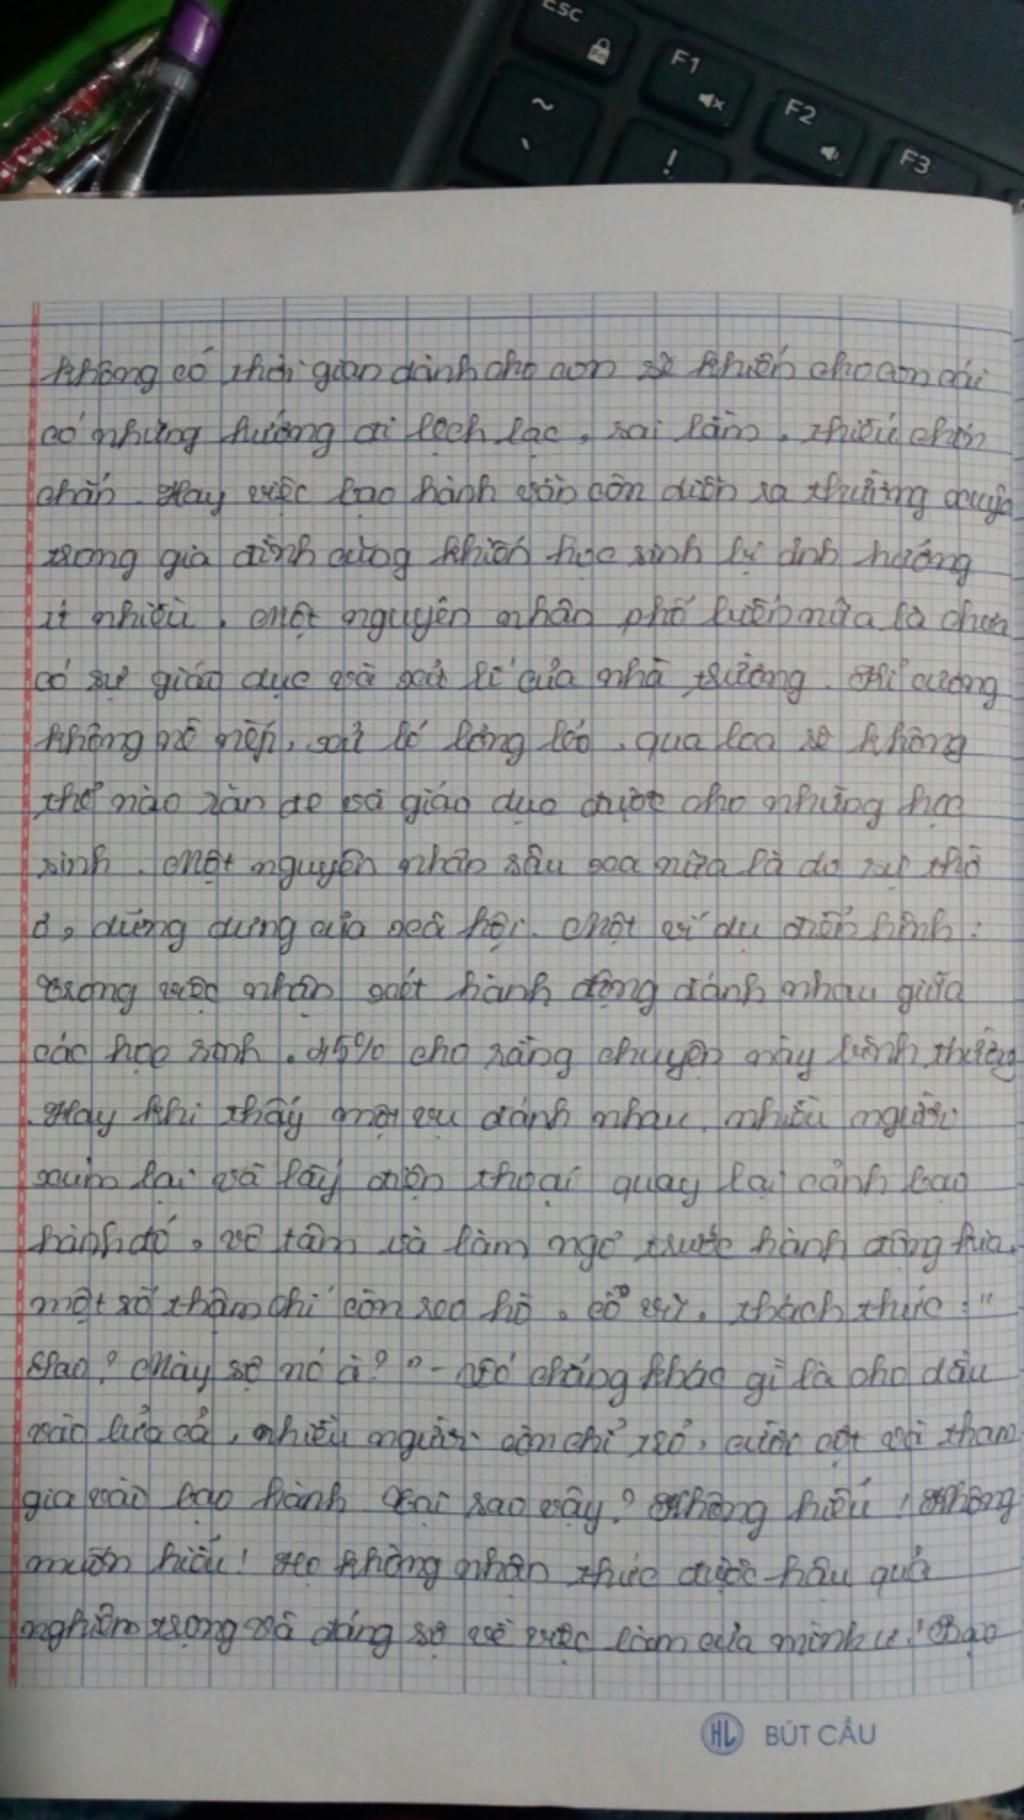 ESC
F1
F2
F3
~
!
không có thời gian dành cho con sẽ khiến cho con cái
có những hướng đi lệch lạc, sai lầm, thiếu chín
chắn. Hay việc bạo hành vẫn còn diễn ra thường xuyên
trong gia đình cũng khiến học sinh bị ảnh hưởng
ít nhiều. Một nguyên nhân phổ biến nữa là chưa
có sự giáo dục và xử lí của nhà trường. Kỉ cương
không nề nếp, xử lí lỏng lẻo, qua loa sẽ không
thể nào răn đe và giáo dục được cho những học
sinh. Một nguyên nhân sâu xa nữa là do sự thờ
ơ, dửng dưng của xã hội. Một ví dụ điển hình:
trong việc nhận xét hành động đánh nhau giữa
các học sinh, 45% cho rằng chuyện này bình thường
Hay khi thấy một vụ đánh nhau, nhiều người
xúm lại và lấy điện thoại quay lại cảnh bạo
hành đó, vô tâm và làm ngơ trước hành động
một số thậm chí còn reo hò, cổ vũ, thách thức: "
Sao? Mày sợ nó à?" - Nó chẳng khác gì là cho dầu
vào lửa cả, nhiều người còn chỉ trỏ, cười cợt và tham
gia vào bạo hành. Tại sao vậy? Không hiểu! Không
muốn hiểu! Họ không nhận thức được hậu quả
nghiêm trọng và đáng sợ về việc làm của mình ư! Bạo
HL BÚT CẦU